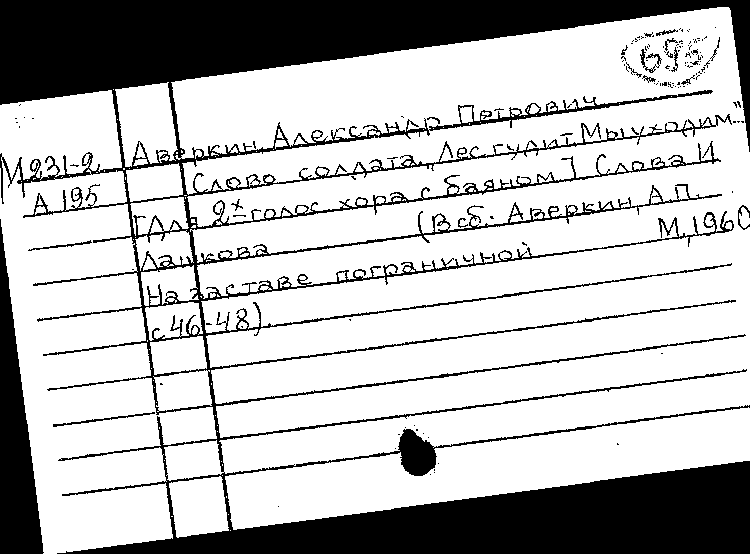 695
М231-2 Аверкин, Александр Петрович
А 195 Слово солдата. „Лес гудит, Мы уходим..."
[Для 2х-голос хора с баяном] Слова И
Лашкова (В сб.: Аверкин, А.П.
На заставе пограничной М., 1960
с 46-48).